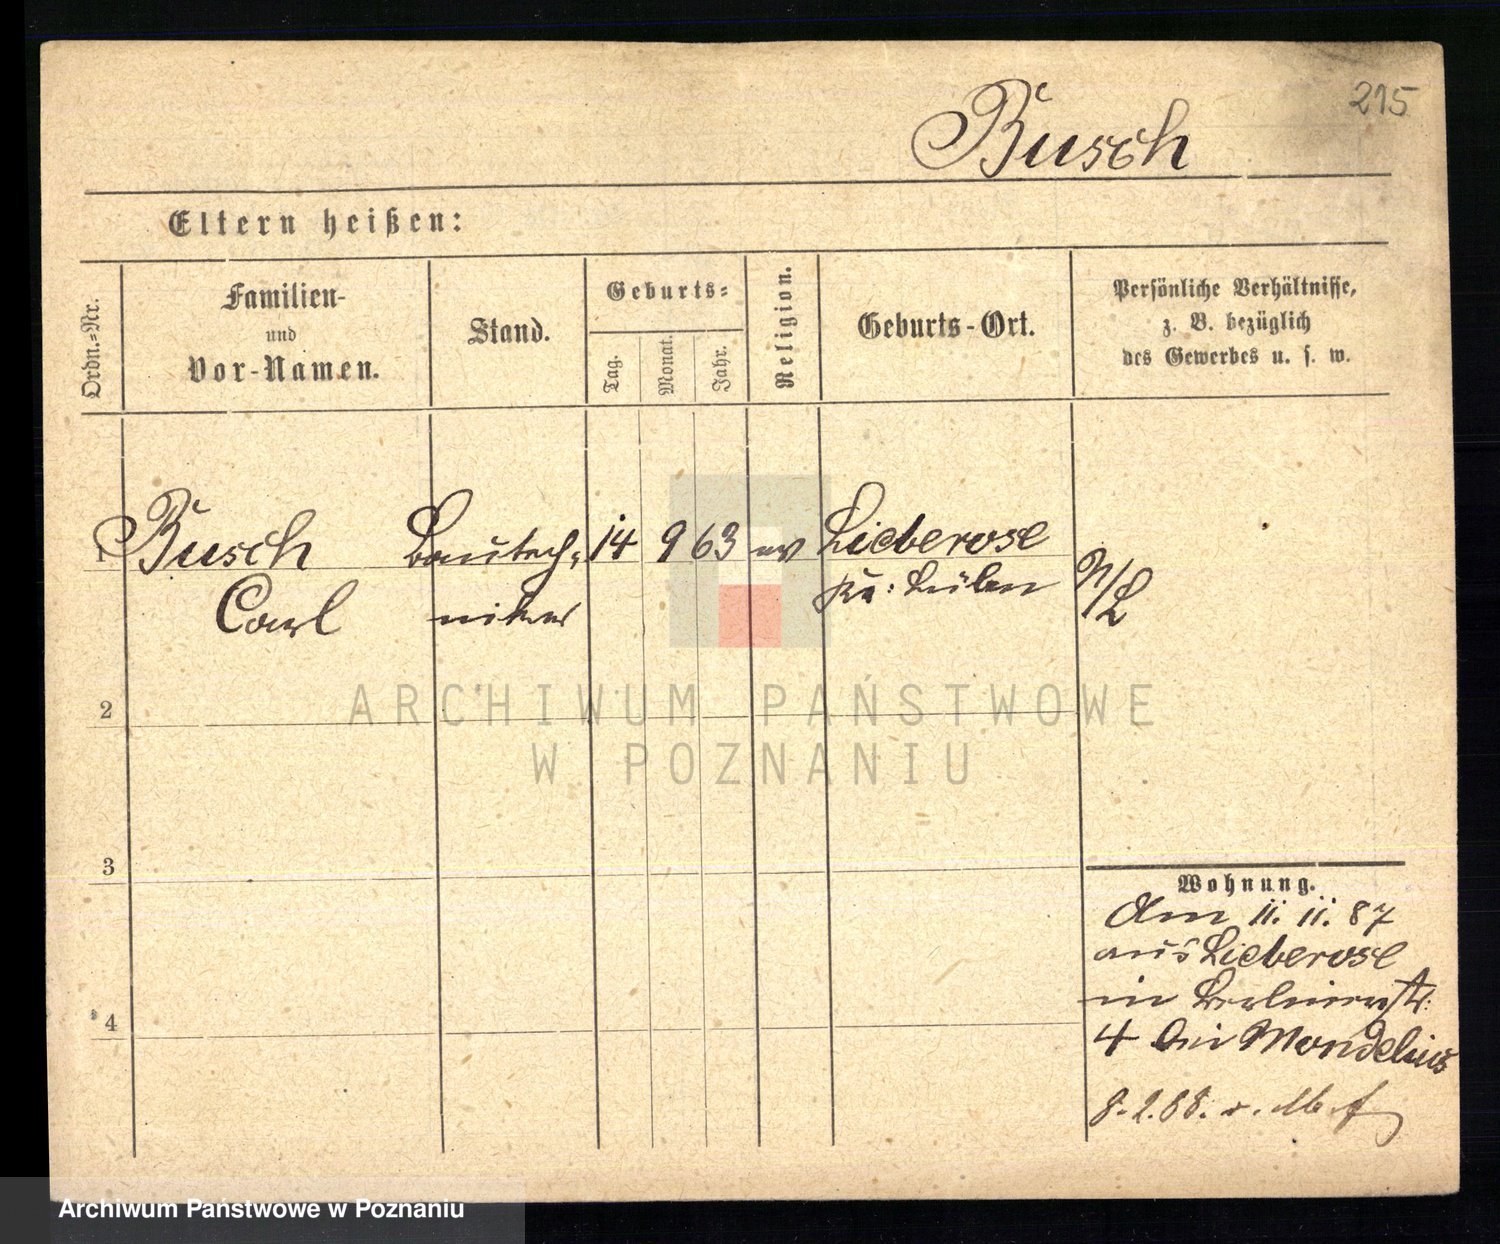 215
Busch
Eltern heißen:
Ordn.-Nr.
Familien-
und
Vor-Namen.
Stand.
Geburts-
Tag.
Monat.
Jahr.
Religion.
Geburts-Ort.
Persönliche Verhältnisse,
z. B. bezüglich
des Gewerbes u. s. w.
1 Busch Bautech- 14 9 63 ev Lieberose
Carl niker Kr: Lüben N/L
ARCHIWUM PAŃSTWOWE
W POZNANIU
2
3
4
Wohnung.
Am 11. 11. 87
aus Lieberose
in Berlinerstr:
4 bei Mondelius
8.2.88. v.
Archiwum Państwowe w Poznaniu